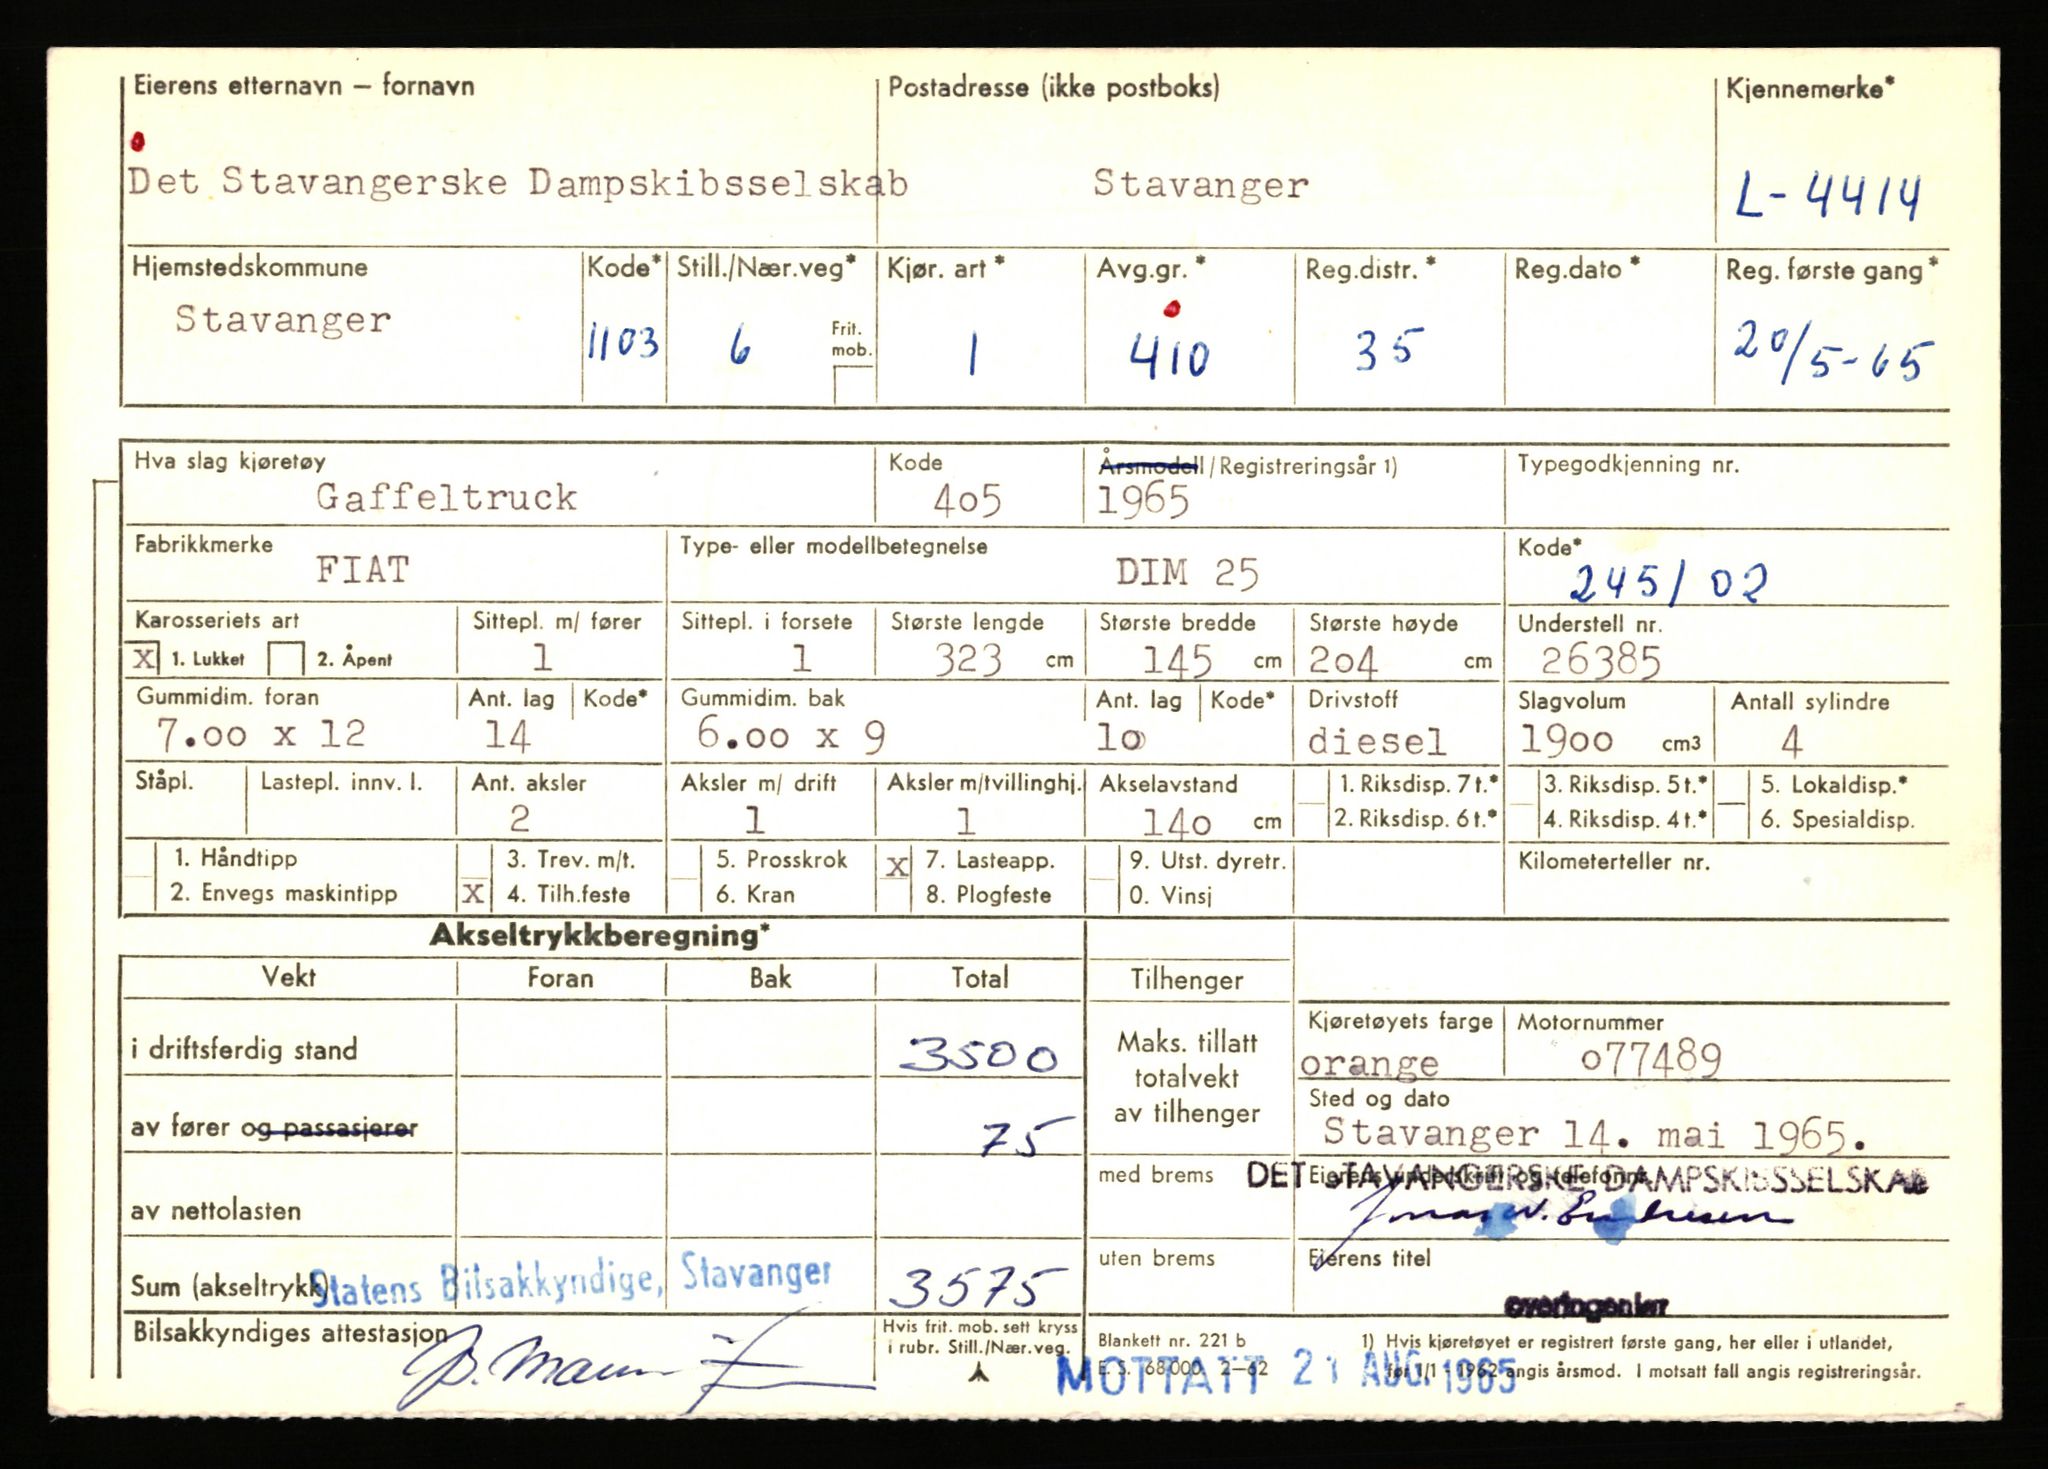 Eierens etternavn – fornavn Postadresse (ikke postboks) Kjennemerke*
Det Stavangerske Dampskibsselskab Stavanger L-4414
Hjemstedskommune Kode* Still./Nær.veg* Kjør. art* Avg.gr.* Reg.distr.* Reg.dato* Reg. første gang*
Stavanger 1103 6 Frit. mob. 1 410 35 20/5-65
Hva slag kjøretøy Kode Årsmodell/Registreringsår 1) Typegodkjenning nr.
Gaffeltruck 405 1965
Fabrikkmerke Type- eller modellbetegnelse Kode*
FIAT DIM 25 245/02
Karosseriets art Sittepl. m/ fører Sittepl. i forsete Største lengde Største bredde Største høyde Understell nr.
X 1. Lukket 2. Åpent 1 1 323 cm 145 cm 204 cm 26385
Gummidim. foran Ant. lag Kode* Gummidim. bak Ant. lag Kode* Drivstoff Slagvolum Antall sylindre
7.00 x 12 14 6.00 x 9 10 diesel 1900 cm3 4
Ståpl. Lastepl. innv. l. Ant. aksler Aksler m/ drift Aksler m/tvillinghj. Akselavstand 1. Riksdisp. 7 t.* 3. Riksdisp. 5 t.* 5. Lokaldisp.*
2 1 1 140 cm 2. Riksdisp. 6 t.* 4. Riksdisp. 4 t.* 6. Spesialdisp.
1. Håndtipp 3. Trev. m/t. 5. Prosskrok X 7. Lasteapp. 9. Utst. dyretr. Kilometerteller nr.
2. Envegs maskintipp X 4. Tilh.feste 6. Kran 8. Plogfeste 0. Vinsj
Akseltrykkberegning*
Vekt Foran Bak Total Tilhenger
Kjøretøyets farge Motornummer
i driftsferdig stand 3500 Maks. tillatt totalvekt av tilhenger orange 077489
Sted og dato
av fører og passasjerer 75 Stavanger 14. mai 1965.
med brems DET STAVANGERSKE DAMPSKIBSSELSKAB
Eierens underskrift og telefonnr.
av nettolasten
uten brems Eierens titel
Sum (akseltrykk) Statens Bilsakkyndige, Stavanger 3575
overingeniør
Bilsakkyndiges attestasjon Hvis frit. mob. sett kryss i rubr. Still./Nær.veg. Blankett nr. 221 b 1) Hvis kjøretøyet er registrert første gang, her eller i utlandet,
E. S. 68000 2–62 før 1/1 1962 angis årsmod. I motsatt fall angis registreringsår.
MOTTATT 21 AUG. 1965